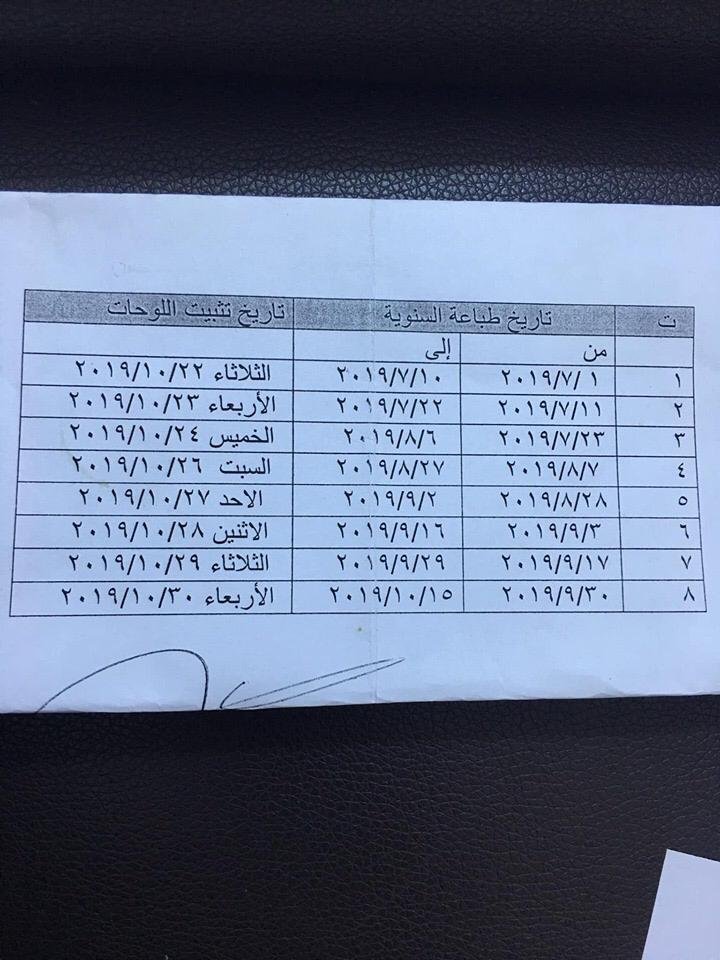 ت تاريخ طباعة السنوية تاريخ تثبيت اللوحات
من إلى
١ ٢٠١٩/٧/١ ٢٠١٩/٧/١٠ الثلاثاء ٢٠١٩/١٠/٢٢
٢ ٢٠١٩/٧/١١ ٢٠١٩/٧/٢٢ الأربعاء ٢٠١٩/١٠/٢٣
٣ ٢٠١٩/٧/٢٣ ٢٠١٩/٨/٦ الخميس ٢٠١٩/١٠/٢٤
٤ ٢٠١٩/٨/٧ ٢٠١٩/٨/٢٧ السبت ٢٠١٩/١٠/٢٦
٥ ٢٠١٩/٨/٢٨ ٢٠١٩/٩/٢ الاحد ٢٠١٩/١٠/٢٧
٦ ٢٠١٩/٩/٣ ٢٠١٩/٩/١٦ الاثنين ٢٠١٩/١٠/٢٨
٧ ٢٠١٩/٩/١٧ ٢٠١٩/٩/٢٩ الثلاثاء ٢٠١٩/١٠/٢٩
٨ ٢٠١٩/٩/٣٠ ٢٠١٩/١٠/١٥ الأربعاء ٢٠١٩/١٠/٣٠